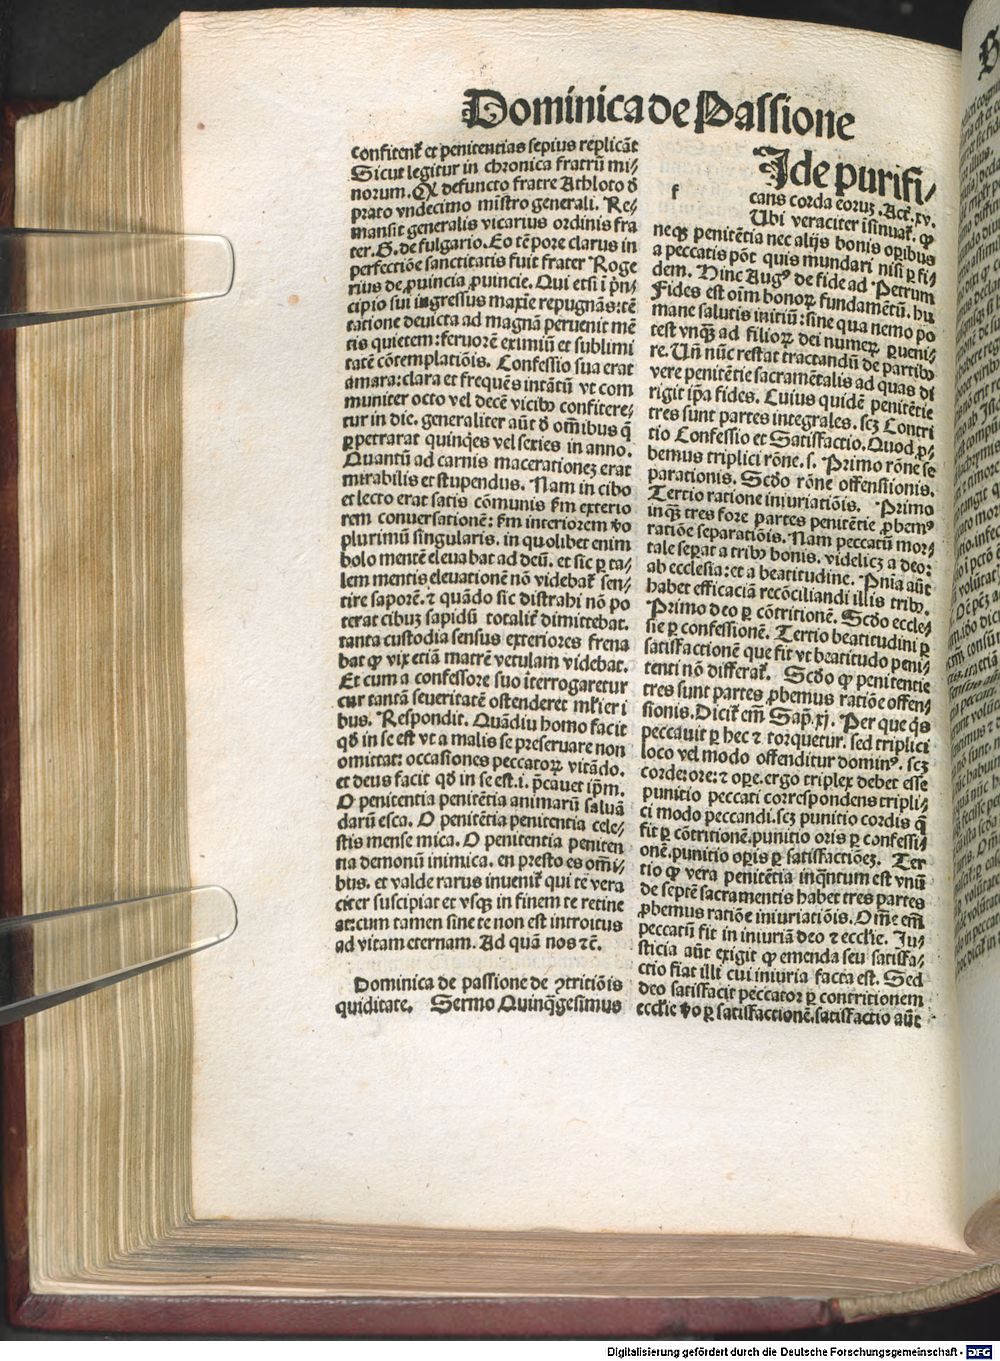 Dominica de Passione
confitent᷑ et penitentias sepius replicāt
Sicut legitur in chronica fratrū mi⸗
norum. Q᷑ defuncto fratre Athloto d̄
prato vndecimo mīstro generali. Re⸗
mansit generalis vicarius ordinis fra
ter. G. de fulgario. Eo tēpore clarus in
perfectiōe sanctitatis fuit frater Roge
rius de ꝓuincia ꝓuincie. Qui etsi ī pn̄⸗
cipio sui ingressus maxīe repugnās: tē
tatione deuicta ad magnā peruenit mē
tis quietem: feruorē eximiū et sublimi
tatē cōtemplatiōis. Confessio sua erat
amara: clara et frequēs intātū vt com
muniter octo vel decē vicibꝰ confitere⸗
tur in die. generaliter aūt d̄ om̄ibus q̄
ꝑpetrarat quinqꝫ vel sexies in anno.
Quantū ad carnis macerationeꝫ erat
mirabilis et stupendus. Nam in cibo
et lecto erat satis cōmunis km̄ exterio
rem conuersationē: km̄ interiorem v̄o
plurimū singularis. in quolibet enim
bolo mentē eleuabat ad deū. et sic ꝑ ta⸗
lem mentis eleuationē nō videbat᷑ sen⸗
tire saporē. ⁊ quādo sic distrahi nō po
terat cibuꝫ sapidū totalit᷑ dimittebat.
tanta custodia sensus exteriores frena
bat ꝙ vix etiā matrē vetulam videbat.
Et cum a confessore suo īterrogaretur
cur tantā seueritatē ostenderet ml̓ieri
bus. Respondit. Quādiu homo facit
qd̄ in se est vt a malis se preseruare non
omittat: occasiones peccatoꝝ vitādo.
et deus facit qd̄ in se est. i. p̄cauet ip̄m.
O penitentia penitētia animarū saluā
darū esca. O penitentia penitentia cele⸗
stis mense mica. O penitentia peniten
tia demonū inimica. en presto es om̄i⸗
bus. et valde rarus inuenit᷑ qui te vera
citer suscipiat et vsqꝫ in finem te retine
at: cum tamen sine te non est introitus
ad vitam eternam. Ad quā nos ⁊c̄.
Dominica de passione de ꝯtritiōis
quiditate. Sermo Quinq̄gesimus
Ide purifi⸗
f
cans corda eoruꝫ. Act. xv.
Ubi veraciter īsinuat᷑. ꝙ
neqꝫ penitētia nec alijs bonis oꝑibus
a peccatis pōt quis mundari nisi ꝑ fi⸗
dem. Hinc Augꝰ de fide ad Petrum
Fides est oīm bonoꝝ fundamētū. hu
mane salutis initiū: sine qua nemo po
test vnqꝫ ad filioꝝ dei numeꝝ ꝑueni⸗
re. Uñ nūc restat tractandū de partibꝰ
vere penitētie sacramētalis ad quas di
rigit ip̄a fides. Cuius quidē penitētie
tres sunt partes integrales. scꝫ Contri
tio Confessio et Satisfactio. Quod ꝓ⸗
bemus triplici rōne. s. Primo rōne se
parationis. Scd̄o rōne offensionis.
Tertio ratione iniuriatiōis. Primo
inq̄ꝫ tres fore partes penitētie ꝓbemꝰ
ratiōe separatiōis. Nam peccatū mor⸗
tale seꝑat a tribꝰ bonis. videlicꝫ a deo:
ab ecclesia: et a beatitudine. Pnīa aūt
habet efficaciā recōciliandi illis tribꝰ.
Primo deo ꝑ cōtritionē. Scd̄o eccle⸗
sie ꝑ confessionē. Tertio beatitudini ꝑ
satisfactionē que fit vt beatitudo peni⸗
tenti nō differat᷑. Scd̄o ꝙ penitentie
tres sunt partes ꝓbemus ratiōe offen⸗
sionis. Dicit᷑ em̄ Sap. xj. Per que q̄s
peccauit ꝑ hec ⁊ torquetur. sed triplici
loco vel modo offenditur dominꝰ. scꝫ
corde: ore: ⁊ oꝑe. ergo triplex debet esse
punitio peccati correspondens tripli⸗
ci modo peccandi. scꝫ punitio cordis q̄
fit ꝑ cōtritionē. punitio oris ꝑ confessi⸗
onē. punitio oꝑis ꝑ satisfactiōeꝫ. Ter
tio ꝙ vera penitētia inq̄ntum est vnū
de septē sacramentis habet tres partes
ꝓbemus ratiōe iniuriatiōis. Om̄e em̄
peccatū fit in iniuriā deo ⁊ eccl̓ie. Ju⸗
sticia aūt exigit ꝙ emenda seu satisfa⸗
ctio fiat illi cui iniuria facta est. Sed
deo satisfacit peccator ꝑ contritionem
eccl̓ie v̄o ꝑ satisfactionē. satisfactio aūt
Digitalisierung gefördert durch die Deutsche Forschungsgemeinschaft - DFG